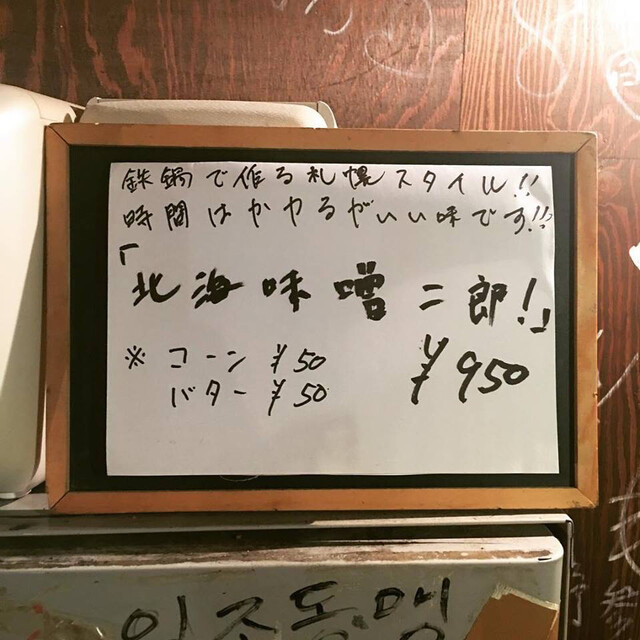 鉄鍋で作る札幌スタイル!!
時間はかかるがいい味です!!
「北海味噌二郎!」
¥950
※ コーン ¥50
バター ¥50